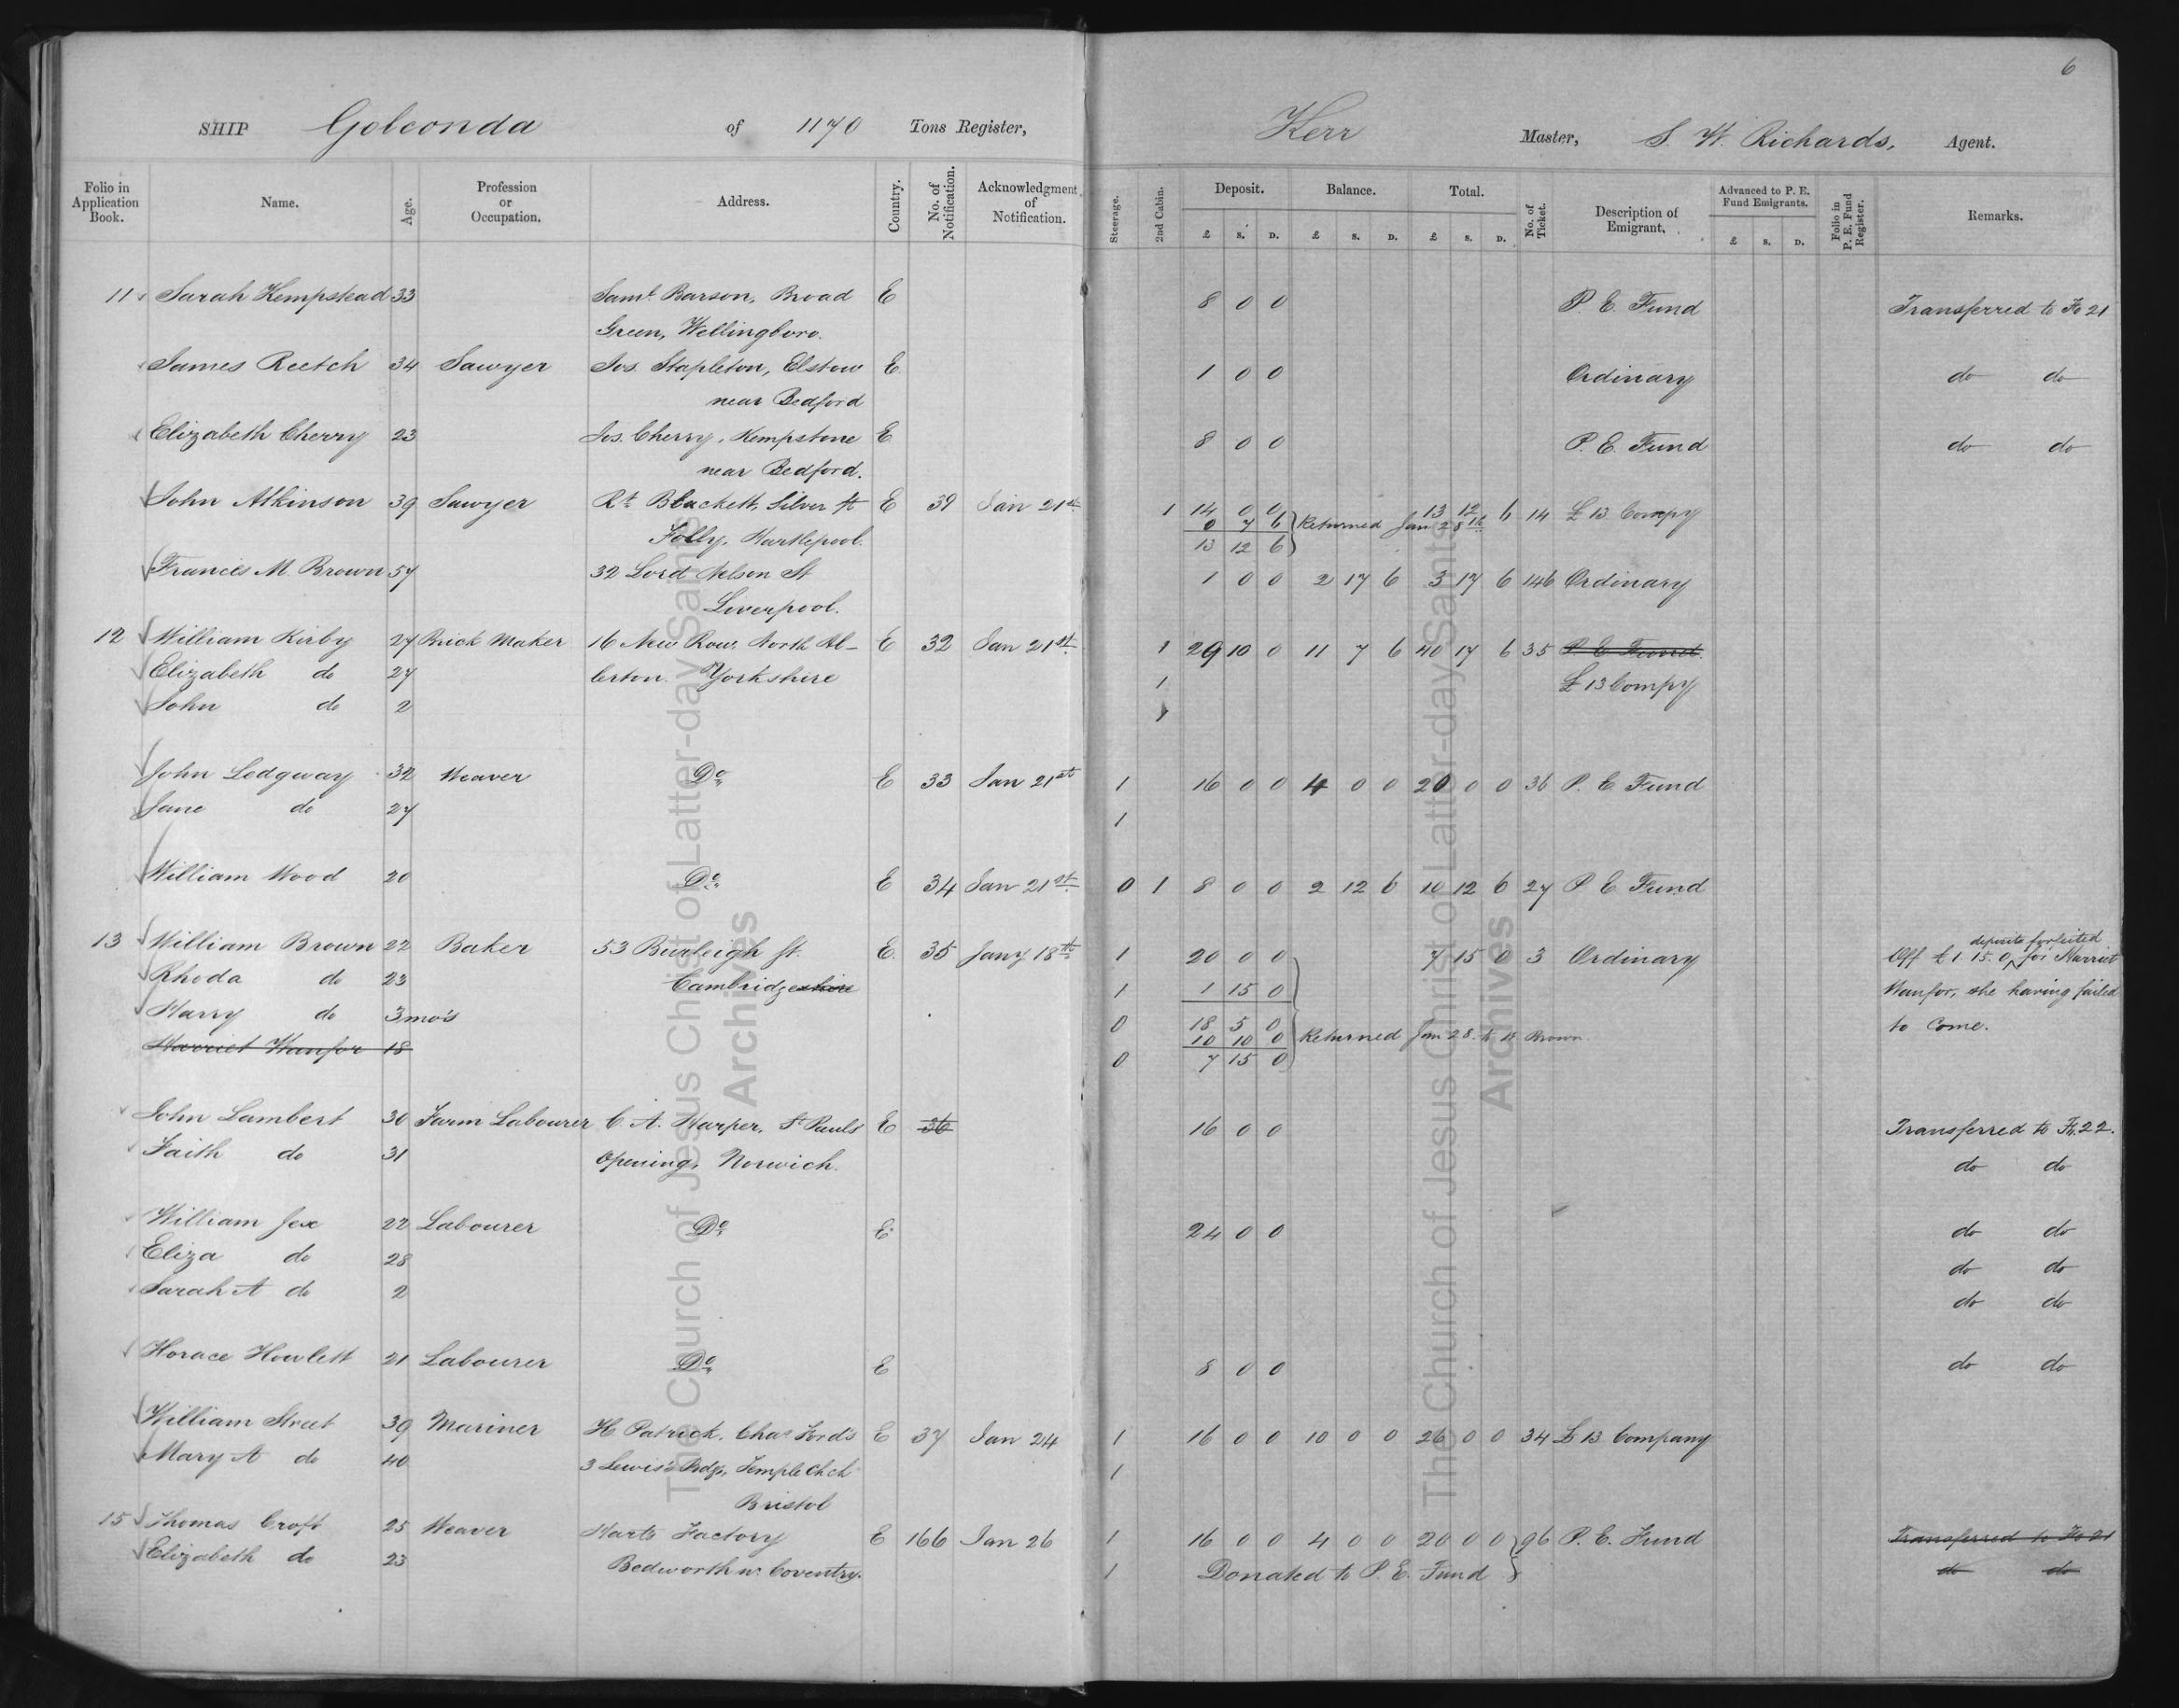 6
SHIP Golconda of 1170 Tons Register, Kerr Master, S. W. Richards, Agent.
Folio in Application Book. Name. Age. Profession or Occupation. Address. Country. No. of Notification. Acknowledgment of Notification. Steerage. 2nd Cabin. Deposit. Balance. Total. No. of Ticket. Description of Emigrant. Advanced to P. E. Fund Emigrants. Folio in P. E. Fund Register. Remarks.
£ S. D. £ S. D. £ S. D. £ S. D.
11 Sarah Hempstead 33 Saml. Barson, Broad E 8 0 0 P. E. Fund Transferred to Fo 21
Green, Wellingboro.
James Reetch 34 Sawyer Jos. Stapleton, Elstow E 1 0 0 Ordinary do do
near Bedford
Elizabeth Cherry 23 Jos. Cherry, Kempstone E 8 0 0 P. E. Fund do do
near Bedford.
John Atkinson 39 Sawyer Rt. Blackett, Silver St E 39 Jan 21st 1 14 0 0 13 12 6 14 £13 Compy
Folly, Hartlepool. 0 7 6 Returned Jan 28th
13 12 6
Frances M. Brown 57 32 Lord Nelson St 1 0 0 2 17 6 3 17 6 146 Ordinary
Liverpool.
12 William Kirby 27 Brick Maker 16 New Row, North Al- E 32 Jan 21st. 1 29 10 0 11 7 6 40 17 6 35 P. E. Fund.
Elizabeth do 27 lerton. Yorkshire 1 £13 Compy
John do 2 1
John Ledgway 32 Weaver Do E 33 Jan 21st 1 16 0 0 4 0 0 20 0 0 36 P. E. Fund
Jane do 27 1
William Wood 20 Do E 34 Jan 21st. 0 1 8 0 0 2 12 6 10 12 6 27 P. E. Fund
13 William Brown 22 Baker 53 Burleigh St. E. 35 Jany 18th 1 20 0 0 7 15 0 3 Ordinary Off £1. 15. 0, deposite forfeited for Harriet
Rhoda do 23 Cambridgeshire 1 1 15 0 Wanfor, she having failed
Harry do 3mo's 0 18 5 0 to come.
10 10 0 Returned Jan 28. to W Brown
Harriet Wanfor 18 0 7 15 0
John Lambert 30 Farm Labourer C. A. Harper, St Pauls E 36 16 0 0 Transferred to Fo. 22.
Faith do 31 Opening, Norwich. do do
William Jex 22 Labourer Do E 24 0 0 do do
Eliza do 28 do do
Sarah A do 2 do do
Horace Howlett 21 Labourer Do E 8 0 0 do do
William Street 39 Mariner H Patrick, Chas Ford's E 37 Jan 24 1 16 0 0 10 0 0 26 0 0 34 £13 Company
Mary A do 40 3 Lewis's Bdgs, Temple Chch 1
Bristol
15 Thomas Croft 25 Weaver Harts Factory E 166 Jan 26 1 16 0 0 4 0 0 20 0 0 96 P. E. Fund Transferred to Fo 21
Elizabeth do 23 Bedworth nr. Coventry. 1 Donated to P. E. Fund do do
The Church of Jesus Christ of Latter-day Saints
Archives
The Church of Jesus Christ of Latter-day Saints
Archives